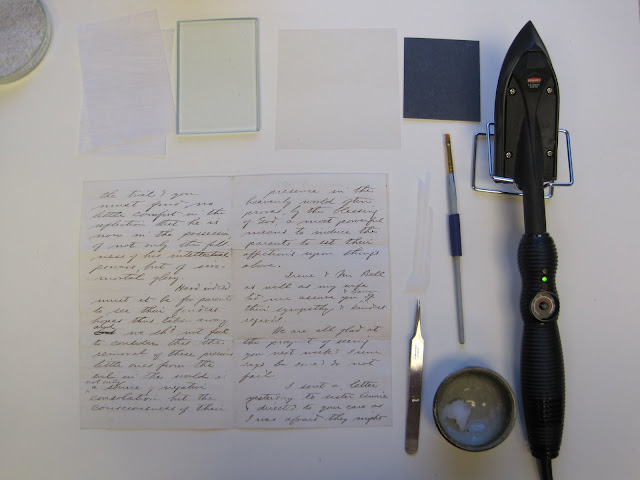 the trial & you
must find no
little comfort in the
reflection that he is
now in the possession
of not only the full
ness of his intellectual
powers, but of im-
mortal glory.
Hard indeed
must it be for parents
to see their fondest
hopes thus taken away
and we sh'd not fail
to consider that the
removal of these precious
little ones from the
evil in the world is
not only
a source of negative
consolation but the
consciousness of their
presence in the
heavenly world often
proves, by the blessing
of God, a most powerful
means to induce the
parents to set their
affections upon things
above.
Irene & Mr. Ball
as well as my wife
bid me assure you of
their sympathy & kindest
regards.
We are all glad at
the prospect of seeing
you next week. Irene
says be sure & do not
fail.
I sent a letter
yesterday to sister
& directed to your care as
I was afraid they might